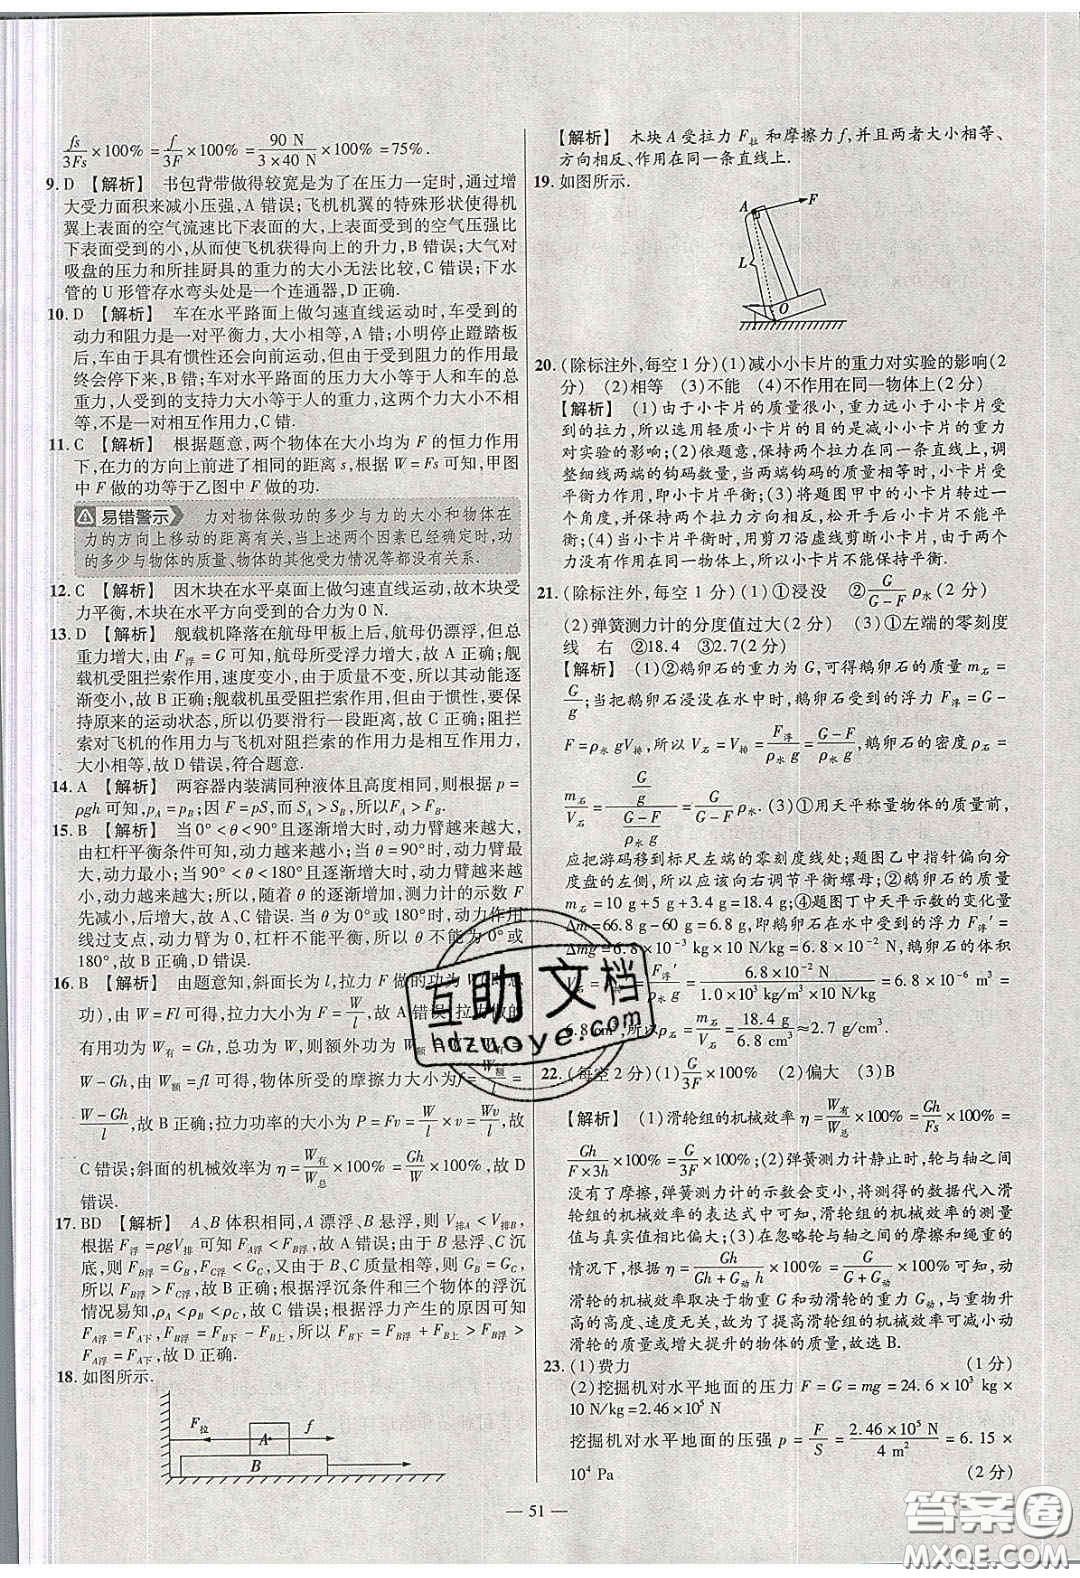 fs/3Fs×100% = f/3F×100% = 90 N/(3×40 N)×100% = 75%.
9. D 【解析】 书包背带做得较宽是为了在压力一定时,通过增
大受力面积来减小压强,A 错误;飞机机翼的特殊形状使得机
翼上表面的空气流速比下表面的大,上表面受到的空气压强
比下表面受到的小,从而使飞机获得向上的升力,B 错误;大气对
吸盘的压力和所挂厨具的重力的大小无法比较,C 错误;下水
管的 U 形管存水弯头处是一个连通器,D 正确.
10. D 【解析】 车在水平路面上做匀速直线运动时,车受到的
动力和阻力是一对平衡力,大小相等,A 错;小明停止蹬踏板
后,由于具有惯性还会向前运动,但由于受到阻力的作用最
终会停下,B 错;车对水平路面的压力大小等于人和车的总
重,人受到的支持力大小等于人的重力,这两个力大小不相
等,不是一对相互作用力,C 错.
11. C 【解析】 根据题意,两个物体在大小均为 F 的恒力作用
下,在力的方向上前进了相同的距离 s,根据 W = Fs 可知,甲图
中 F 做的功等于乙图中 F 做的功.
易错警示 力对物体做功的多少与力的大小和物体在
力的方向上移动的距离有关,当上述两个因素已经确定时,功
的多少与物体的质量、物体的其他受力情况等都没有关系.
12. C 【解析】 因木块在水平桌面上做匀速直线运动,故木块受
力平衡,木块在水平方向受到的合力为 0 N.
13. D 【解析】 舰载机降落在航母甲板上后,航母仍漂浮,但总
重力增大,由 F浮 = G 可知,航母所受浮力增大,故 A 正确;舰
载机受阻拦索作用,速度变小,由于质量不变,所以其动能逐
渐变小,故 B 正确;舰载机虽受阻拦索作用,但由于惯性,要
保持原来的运动状态,所以仍要滑行一段距离,故 C 正确;阻拦
索对飞机的作用力与飞机对阻拦索的作用力是相互作用力,
大小相等,故 D 错误,符合题意.
14. A 【解析】 两容器内装满同种液体且高度相同,则根据 p =
ρgh 可知,pA = pB;因 F = pS,而 SA > SB,所以FA > FB.
15. B 【解析】 当 0° < θ < 90° 且逐渐增大时,动力臂越来越大,
由杠杆平衡条件可知,动力越来越小;当 θ = 90° 时,动力臂最
大,动力最小;当 90° < θ < 180° 且逐渐增大时,动力臂越来越
小,动力越来越大;所以,随着 θ 的逐渐增加,测力计的示数 F
先减小,后增大,故 A、C 错误,B 正确;当 θ 为 0° 或 180° 时,动力作用
线过支点,动力臂为 0,杠杆不能平衡,所以 θ 不能为 0° 或
180°,故 D 错误.
16. B 【解析】 由题意知,斜面长为 l,拉力 F 做的功为 W(即总
功),由 W = Fl 可得,拉力大小为 F = W/l,故 A 错误;拉力做的
有用功为 W有 = Gh,总功为 W,则额外功为 W额 = W - W有 =
W - Gh,由 W额 = fl 可得,物体所受的摩擦力大小为 f = W额/l =
(W - Gh)/l,故 B 正确;拉力功率的大小为 P = Fv = W/l×v = Wv/l,故
C 错误;斜面的机械效率为 η = W有/W总×100% = Gh/W×100%,故 D
错误.
17. BD 【解析】 A、B 体积相同,A 漂浮、B 悬浮,则 V排A < V排B,
根据 F浮 = ρgV排 可知 FA浮 < FB浮,故 A 错误;由于 B 悬浮、C 沉
底,则 FB浮 = GB,FC浮 < GC,又由于 B、C 质量相等,则 GB = GC,
所以 FB浮 > FC浮,故 B 正确;根据浮沉条件和三个物体的浮沉
情况易知,ρA < ρB < ρC,故 C 错误;根据浮力产生的原因可知
FA浮 = FA下,FB浮 = FB下 - FB上,所以 FB浮 + FB上 > FB浮 > FA浮 =
FA下,故 D 正确.
18. 如图所示.
F拉 A f
B
【解析】 木块 A 受拉力 F拉 和摩擦力 f,并且两者大小相等、
方向相反、作用在同一条直线上.
19. 如图所示.
A F
L
O
20. (除标注外,每空 1 分)(1)减小小卡片的重力对实验的影响(2
分) (2)相等 (3)不能 (4)不作用在同一物体上(2 分)
【解析】 (1)由于小卡片的质量很小,重力远小于小卡片受
到的拉力,所以选用轻质小卡片的目的是减小小卡片的重力
对实验的影响;(2)依题意,保持两个力作用在同一条直线上,调
整细线两端的钩码数量,当两端钩码的质量相等时,小卡片平
衡力作用,即小卡片平衡;(3)将题图甲中的小卡片旋转一个
角度,并保持两个拉力方向相反,松开手后小卡片不能平
衡;(4)当小卡片平衡时,用剪刀沿虚线剪断小卡片,两个拉
力不作用在同一物体上,所以小卡片不能保持平衡.
21. (除标注外,每空 1 分)(1)①浸没 ②G/(G-F) ρ水(2 分)
(2)弹簧测力计的分度值过大(2 分) (3)①左端的零刻度
线 右 ②18.4 ③2.7(2 分)
【解析】 (1)②鹅卵石的重力为 G,可得鹅卵石的质量 m石 =
G/g;当把鹅卵石浸没在水中时,鹅卵石受到的浮力 F浮 = G -
F = ρ水gV排,所以 V石 = V排 = F浮/(ρ水g) = (G-F)/(ρ水g),鹅卵石的密度 ρ石 =
m石/V石 = (G/g)/((G-F)/(ρ水g)) = G/(G-F) ρ水. (3)①用天平称量物体的质量前,
应把游码移到标尺左端的零刻度线处;题图乙中指针偏向分
度盘的左侧,所以应该向右调节平衡螺母;②鹅卵石的质量
m石 = 10 g + 5 g + 3.4 g = 18.4 g;④题图丁中天平示数的变化量
Δm = 66.8 g - 60 g = 6.8 g,即鹅卵石在水中受到的浮力 F浮′ =
Δmg = 6.8×10⁻³ kg×10 N/kg = 6.8×10⁻² N,鹅卵石的体积
F浮′ = 6.8×10⁻² N/(1.0×10³ kg/m³×10 N/kg) = 6.8×10⁻⁶ m³ =
6.8 cm³,ρ石 = m石/V石 = 18.4 g/6.8 cm³ ≈ 2.7 g/cm³.
22. (每空 2 分)(1)G/3F×100% (2)偏大 (3)B
【解析】 (1)滑轮组的机械效率 η = W有/W总×100% = Gh/Fs×100% =
Gh/(F×3h)×100% = G/3F×100%;(2)弹簧测力计静止时,轮与轴之间
没有了摩擦,弹簧测力计的示数会变小,将测得的数据代入滑
轮组的机械效率的表达式中可知,滑轮组的机械效率的测量
值与真实值相比偏大;(3)在忽略轮与轴之间的摩擦和绳重的
情况下,根据 Gh/(Gh + G动h)×100% = G/(G + G动)×100% 可知,动
滑轮的机械效率取决于物重 G 和动滑轮的重力 G动,与重物提
升的高度、速度无关,故为了提高滑轮组的机械效率可减小动
滑轮的质量或增大提升的物体的质量,故选 B.
23. (1)费力 (1 分)
(2)挖掘机对水平地面的压力 F = G = mg = 24.6×10³ kg×
10 N/kg = 2.46×10⁵ N
挖掘机对水平地面的压强 p = F/S = 2.46×10⁵ N/4 m² = 6.15×
10⁴ Pa (2 分)
— 51 —
互助文档
hdzuoye.com
答案圈
MXQE.COM